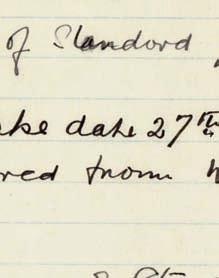 of Standord
ake date 27th
red from